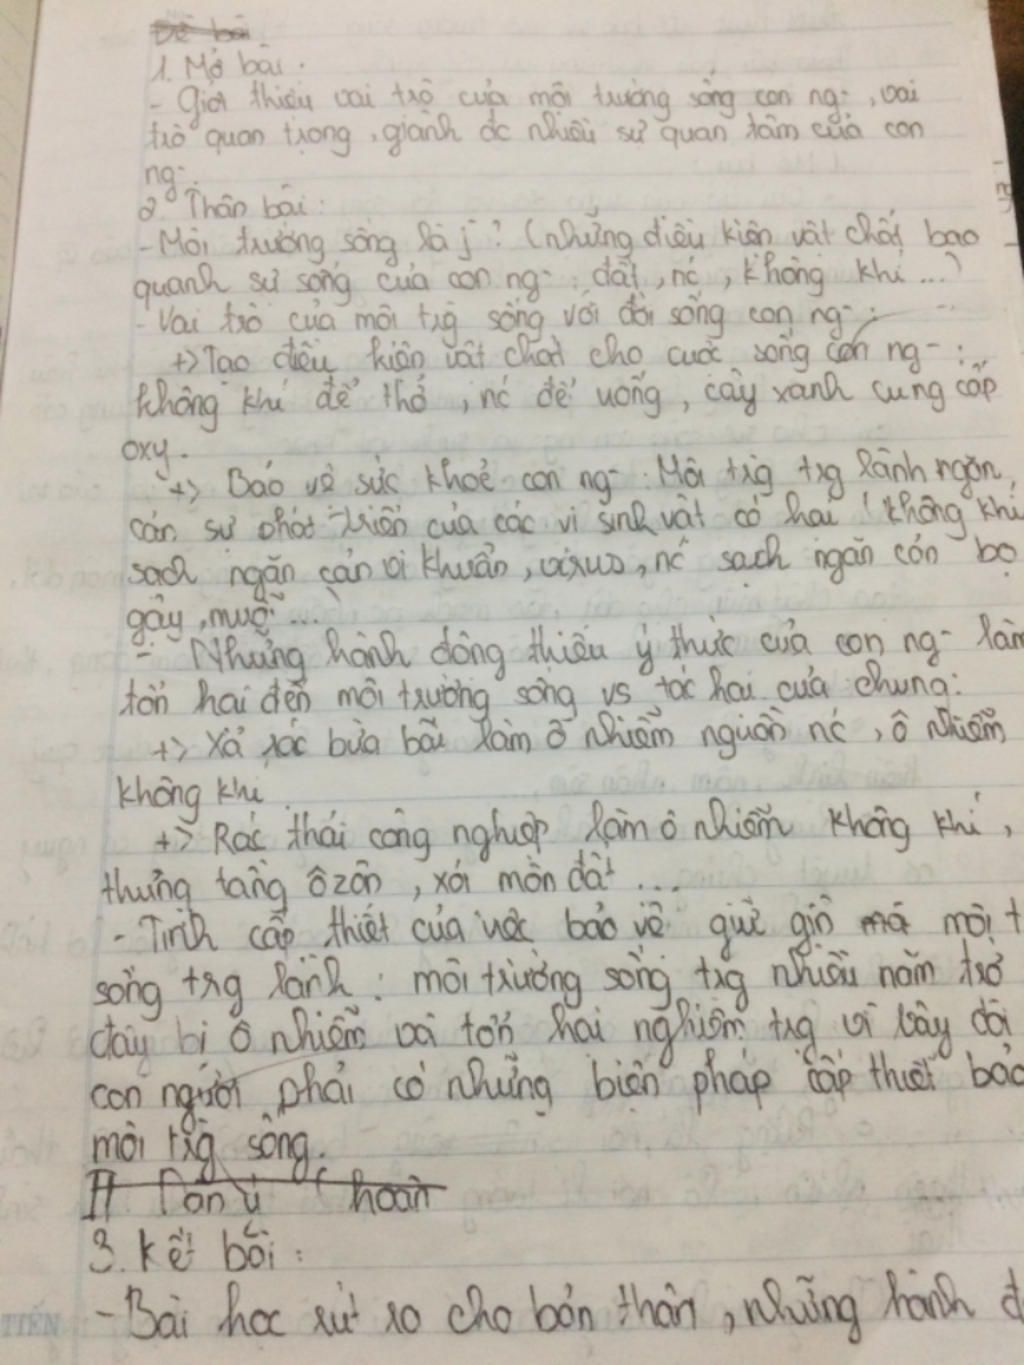 Đề bài
1. Mở bài.
- Giới thiệu vai trò của môi trường sống con ng-, vai
trò quan trọng, giành đc nhiều sự quan tâm của con
ng-.
2. Thân bài:
- Môi trường sống là j? (những điều kiện vật chất bao
quanh sự sống của con ng-: đất, nc, không khí...)
- Vai trò của môi trg sống với đời sống con ng-:
+> Tạo điều kiện vật chất cho cuộc sống con ng-:
không khí để thở, nc để uống, cây xanh cung cấp
oxy.
+> Bảo vệ sức khoẻ con ng-: Môi trg trg lành ngăn
cản sự phát triển của các vi sinh vật có hại (không khí
sạch ngăn cản vi khuẩn, virus, nc sạch ngăn cản bọ
gậy, muỗi...
- Những hành động thiếu ý thức của con ng- làm
tổn hại đến môi trường sống vs tác hại của chung:
+> Xả rác bừa bãi làm ô nhiễm nguồn nc, ô nhiễm
không khí.
+> Rác thải công nghiệp làm ô nhiễm không khí,
thủng tầng ôzôn, xói mòn đất...
- Tính cấp thiết của việc bảo vệ giữ gìn môi t
sống trg lành: môi trường sống trg nhiều năm trở
đây bị ô nhiễm và tổn hại nghiêm trg vì vậy đòi
con người phải có những biện pháp cấp thiết bảo
môi trg sống.
II Dàn ý hoàn
3. Kết bài:
TIẾN - Bài học rút ra cho bản thân, những hành đ